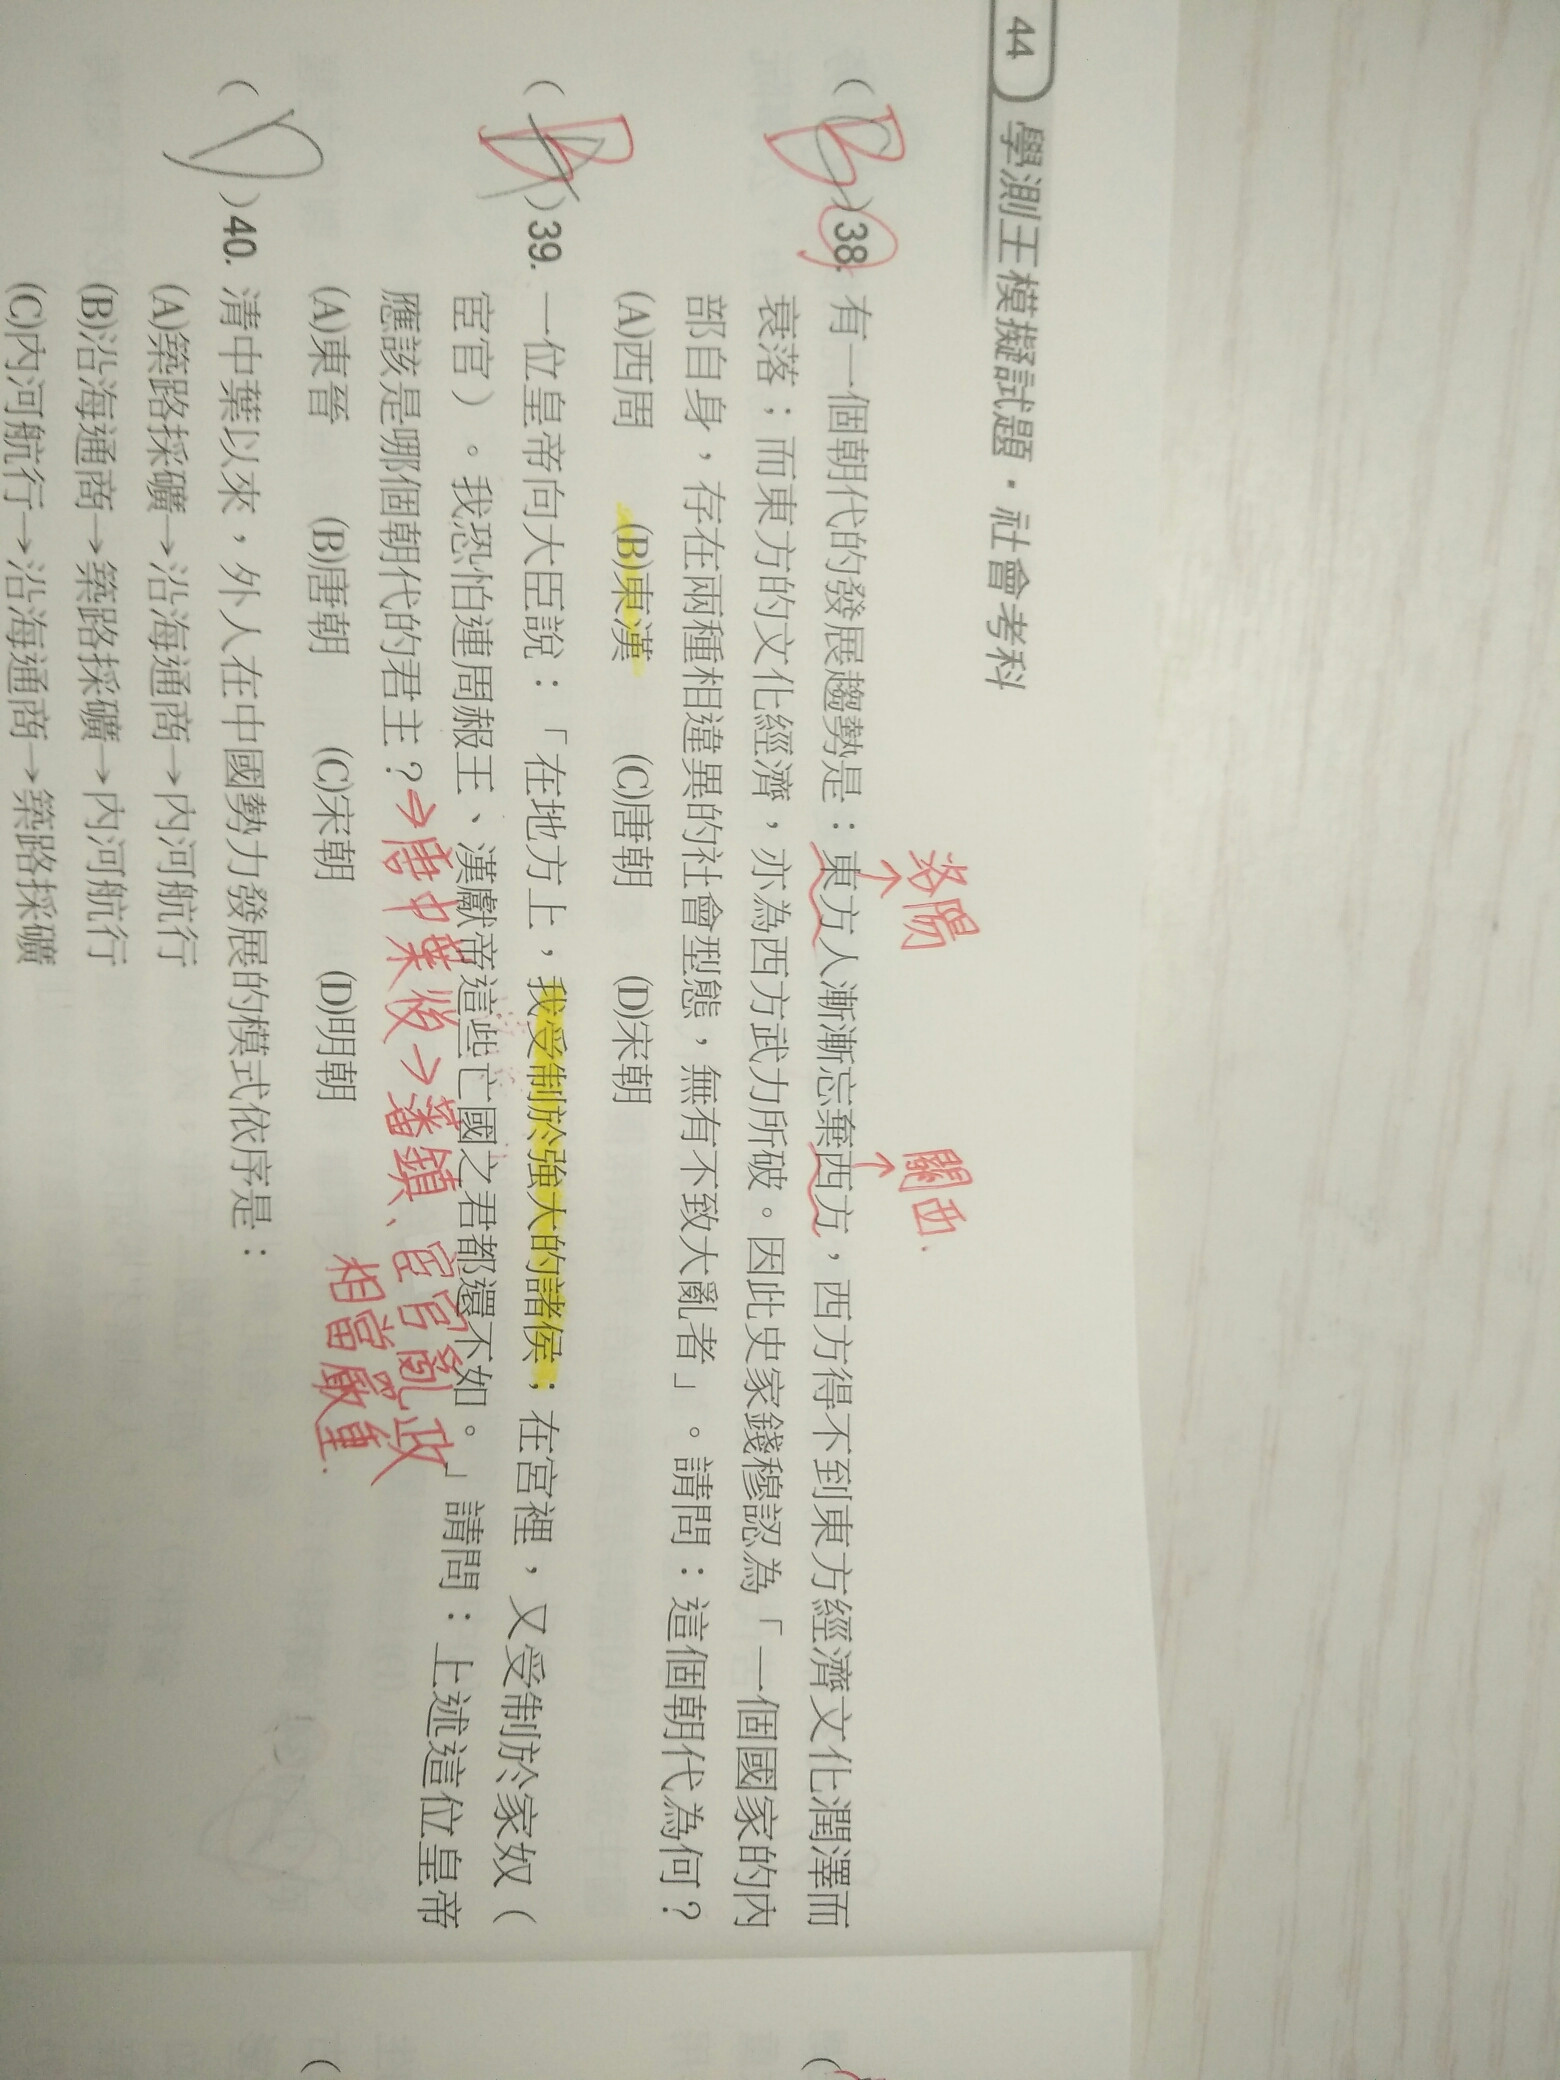 44 學測王模擬試題・社會考科
洛陽
關西.
(B)38. 有一個朝代的發展趨勢是：東方人漸漸忘棄西方，西方得不到東方經濟文化潤澤而
衰落；而東方的文化經濟，亦為西方武力所破。因此史家錢穆認為「一個國家的內
部自身，存在兩種相違異的社會型態，無有不致大亂者」。請問：這個朝代為何？
(A)西周 (B)東漢 (C)唐朝 (D)宋朝
(B)39. 一位皇帝向大臣說：「在地方上，我受制於強大的諸侯；在宮裡，又受制於家奴（
宦官）。我恐怕連周赧王、漢獻帝這些亡國之君都還不如。」請問：上述這位皇帝
應該是哪個朝代的君主？
→唐中葉後→藩鎮、宦官亂政
相當嚴重.
(A)東晉 (B)唐朝 (C)宋朝 (D)明朝
(D)40. 清中葉以來，外人在中國勢力發展的模式依序是：
(A)築路採礦→沿海通商→內河航行
(B)沿海通商→築路採礦→內河航行
(C)內河航行→沿海通商→築路採礦